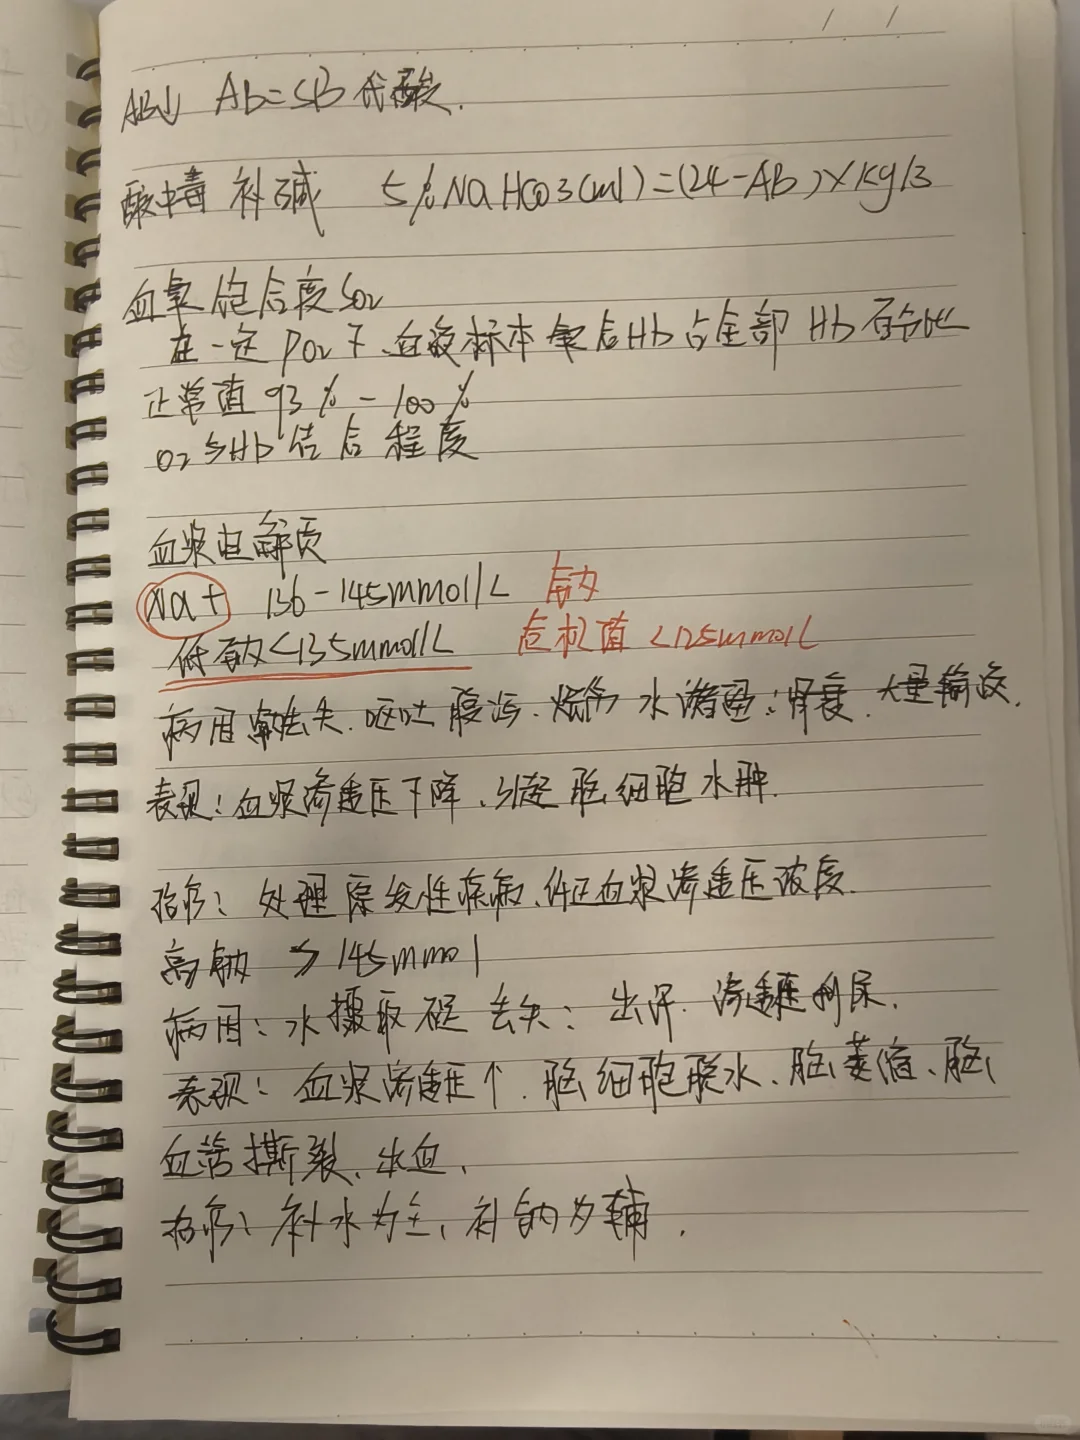 / /
AB↓ Ab=SB 代酸.
酸中毒 补碱 5%NaHCO3(ml)=(24-AB)×kg/3
血氧饱合度SO2
在一定PO2下、血液标本氧合Hb占全部Hb百分比
正常值93%-100%
O2与Hb结合程度
血浆电解质
Na+ 136-145mmol/L 钠
低钠<135mmol/L 危机值<125mmol/L
病因 丢失.呕吐 腹泻.烧伤 水潴留:肾衰.大量输液.
表现:血浆渗透压下降、引起脑细胞水肿.
治疗:处理原发性疾病、纠正血浆渗透压浓度.
高钠 >145mmol
病因:水摄取 丢失:出汗.渗透压利尿.
表现:血浆渗透压个.脑细胞脱水、脑萎缩、脑
血管撕裂、出血、
治疗:补水为主、补钠为辅.